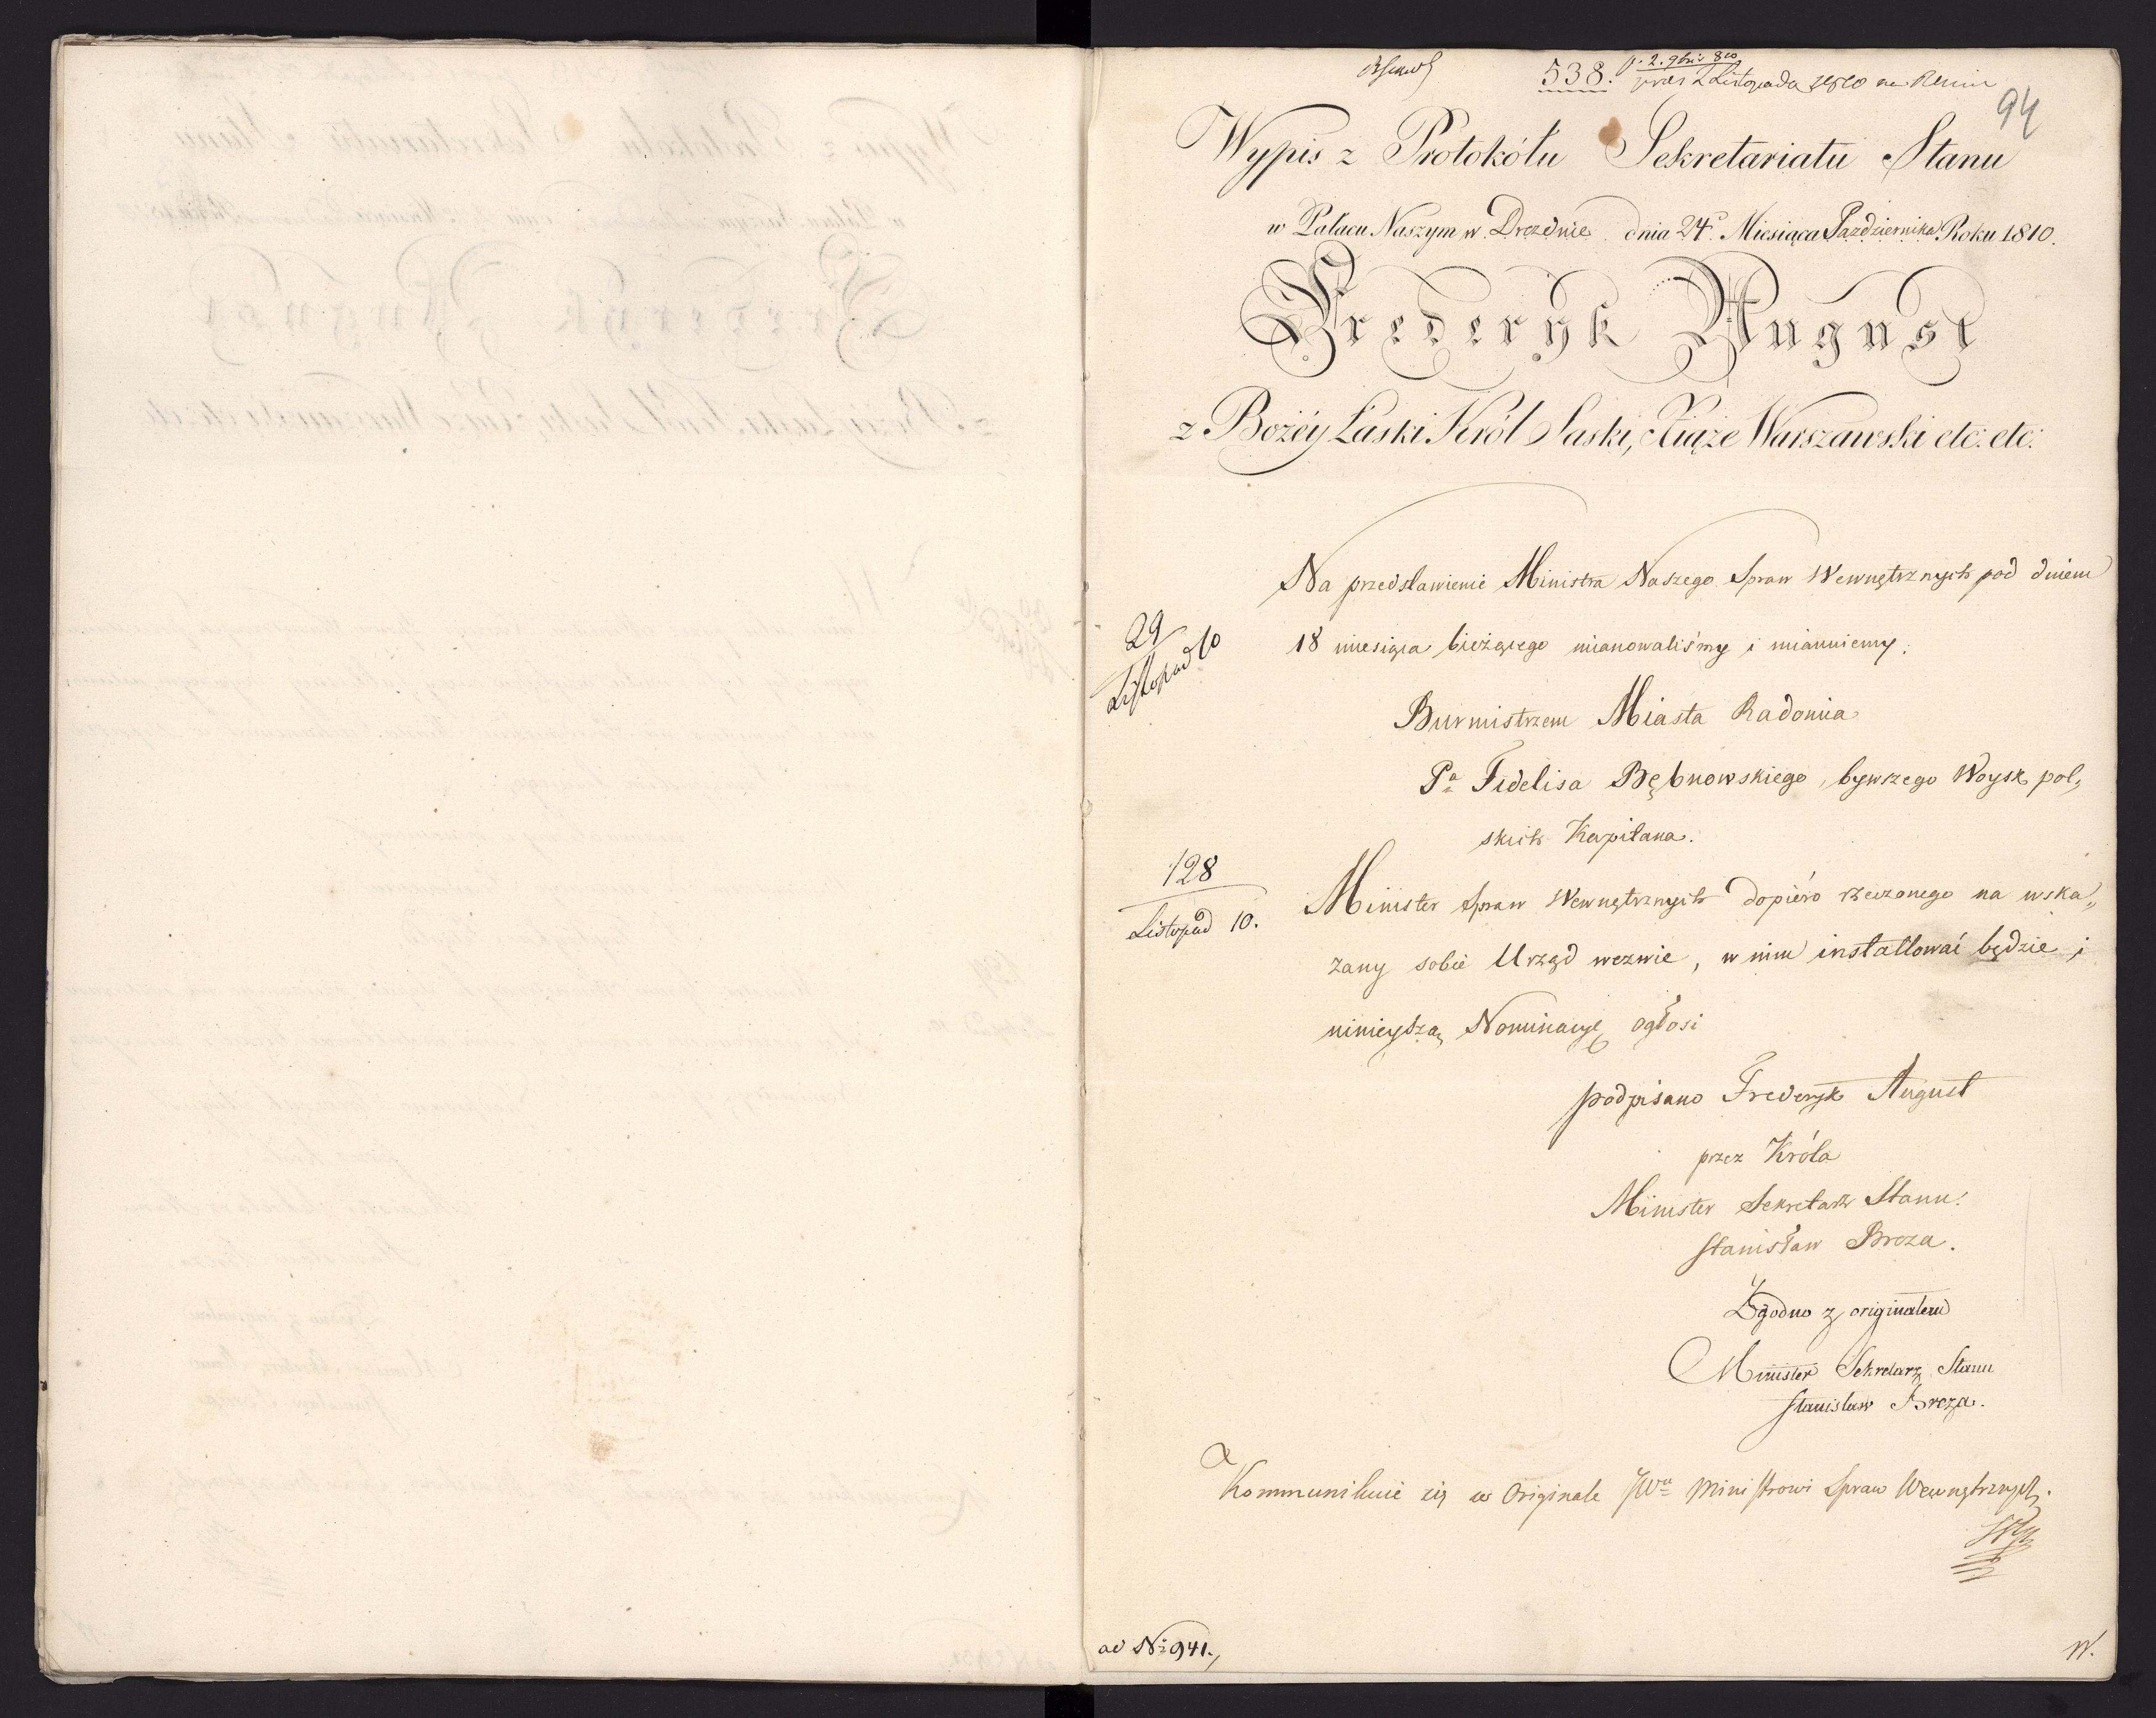 538.
94
Wypis z Protokółu Sekretariatu Stanu
w Pałacu Naszym w Dreznie dnia 24º Miesiąca Pazdziernika Roku 1810.
Frederyk August
z Bożéy Łaski Król Saski, Xiąże Warszawski etc: etc:
Na przedstawienie Ministra Naszego Spraw Wewnętrznych pod dniem
29
Listopad 10
18 miesiąca bieżącego mianowaliśmy i mianuiemy:
Burmistrzem Miasta Radomia
Pa Fidelisa Bębnowskiego, bywszego Woysk pol„
skich Kapitana.
128
Listopad 10.
Minister Spraw Wewnętrznych dopiéro rzeczonego na wska„
zany sobie Urząd wezwie, w nim installować będzie i
ninieyszą Nominacyę ogłosi
podpisano Frederyk August
przez Króla
Minister Sekretarz Stanu:
Stanisław Breza.
Zgodno z originałem
Minister Sekretarz Stanu
Stanisław Breza.
Kommunikuie się w Originale JWu Ministrowi Spraw Wewnętrznych.
ad No 941.,
W.